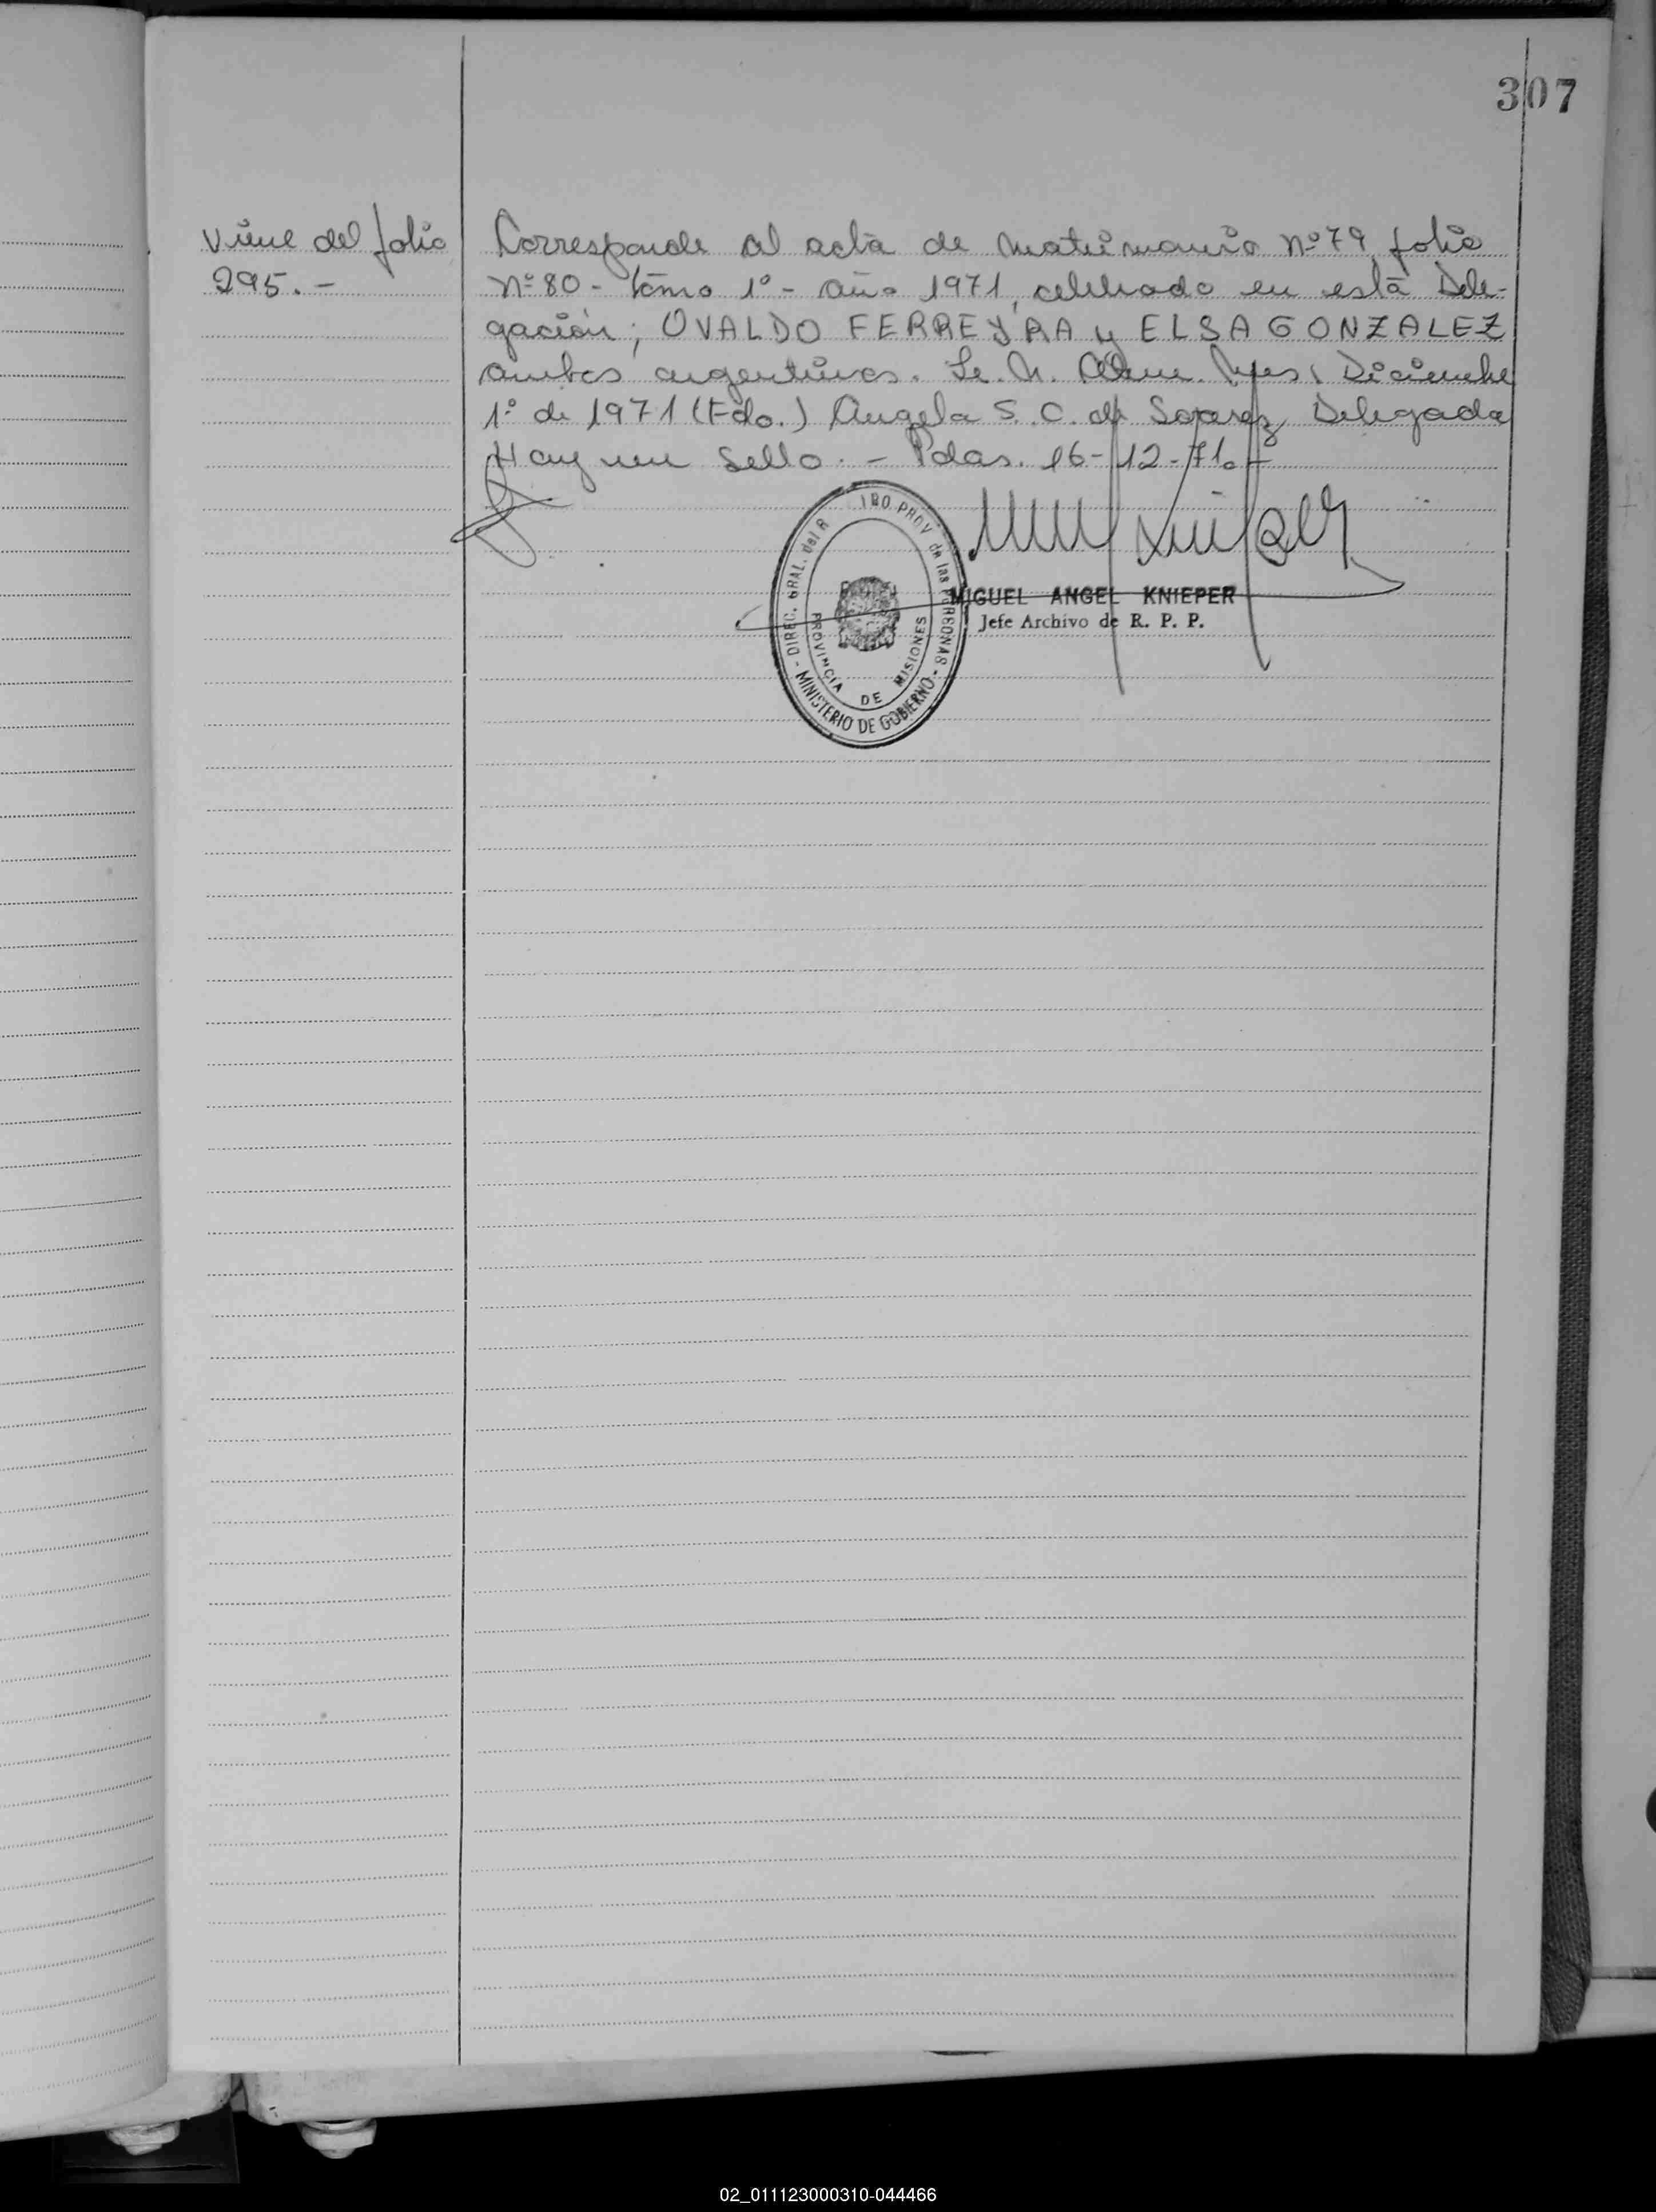 307
Viene del folio
295.-
Corresponde al acta de matrimonio Nº79, folio
Nº80 - tomo 1º - año 1971, celebrado en esta Dele-
gación; OVALDO FERREYRA y ELSA GONZALEZ
ambos argentinos. Le. N. Alem. Mnes, Diciembre
1º de 1971 (Fdo.) Angela S. C. de Soarez Delegada
Hay un sello. - Pdas. 16-12-71.-
DIREC. GRAL. del R PROV de las PERSONAS - MINISTERIO DE GOBIERNO -
PROVINCIA DE MISIONES
MIGUEL ANGEL KNIEPER
Jefe Archivo de R. P. P.
02_011123000310-044466